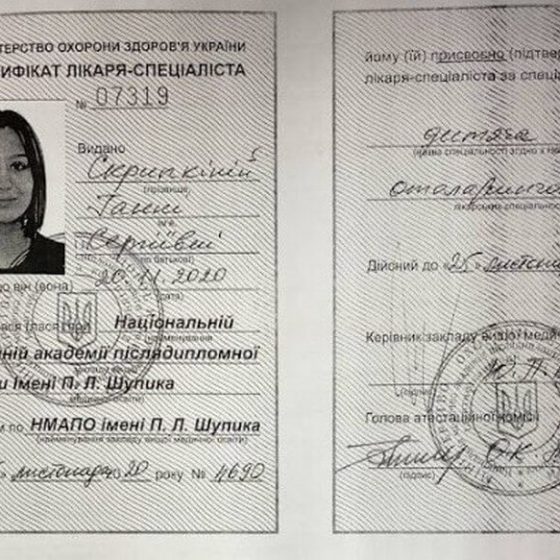 ТЕРСТВО ОХОРОНИ ЗДОРОВ'Я УКРАЇНИ
ИФІКАТ ЛІКАРЯ-СПЕЦІАЛІСТА
№ 07319
Видано
Скрипкіній
(прізвище)
Ганні
ім'я
Сергіївні
(по батькові)
що він (вона) 20.11.2020
(дата)
вся (лася) при Національній
(найменування
ній академії післядипломної
и імені П. Л. Шупика
медичної освіти)
м по НМАПО імені П. Л. Шупика
(найменування закладу вищої медичної освіти)
листопада 2020 року № 4690
йому (їй) присвоєно (підтвер
лікаря-спеціаліста за спеці
дитяча
(назва спеціальності згідно з
отоларинго
лікарських спеціальнос
Дійсний до «25» листопа
Керівник закладу вищої медич
(підпис)
Голова атестаційної комісії